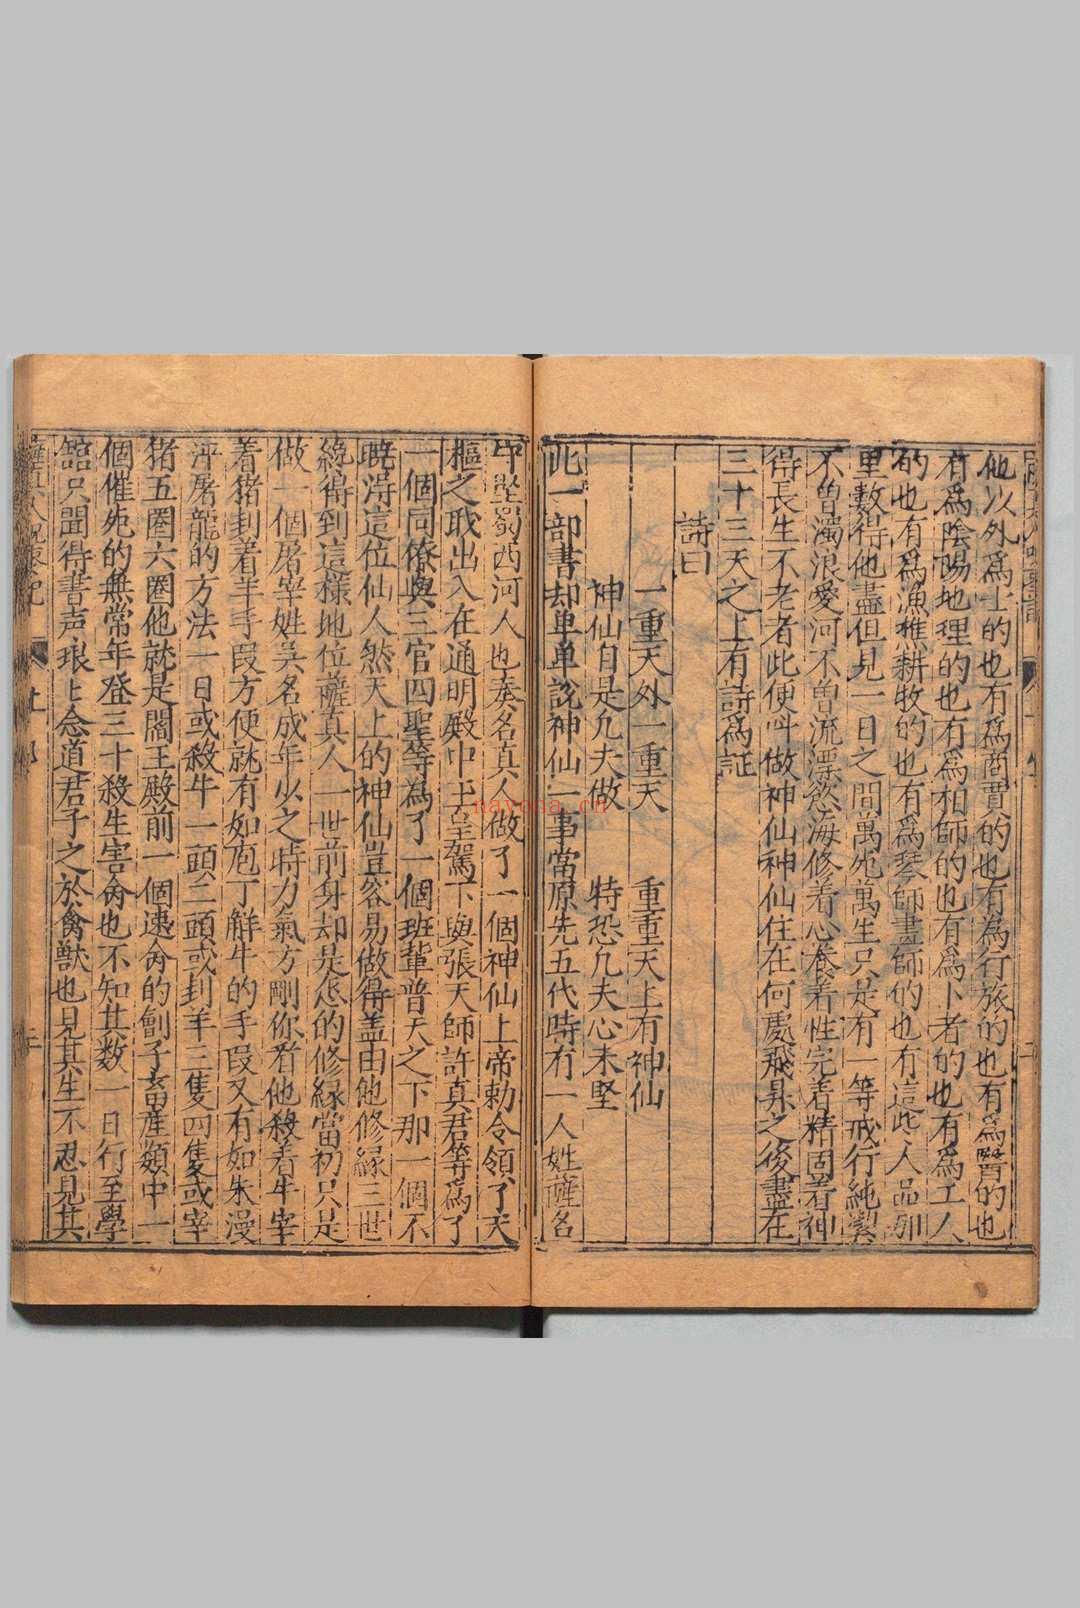 他以外爲士的也有爲商賈的也有為行旅的也有爲醫的也
有爲陰陽地理的也有爲相師的也有爲卜者的也有為工人
的也有爲漁樵耕牧的也有爲琴師畫師的也有這些人品那
里數得他盡但見一日之間萬死萬生只是有一等戒行純潔
不曾濁浪愛河不曾流漂慾海修着心養着性完着精固着神
得長生不老者此便呌做神仙神仙住在何處飛昇之後盡在
三十三天之上有詩爲証
詩曰
一重天外一重天 重重天上有神仙
神仙自是凢夫做 特恐凢夫心未堅
此一部書却単単說神仙一事當原先五代時有一人姓薩名
守堅蜀西河人也奏名真人做了一個神仙上帝勅令領了天
樞之職出入在通明殿中上皇駕下與張天師許真君等爲了
一個同僚與三官四聖等為了一個班輩普天之下那一個不
曉淂這位仙人然天上的神仙豈容易做得盖由他修縁三世
纔得到這樣地位薩真人一世前身却是怎的修縁當初只是
做一個屠宰姓吳名成年少之時力氣方剛你看他殺着牛宰
着猪封着羊手段方便就有如庖丁解牛的手段又有如朱漫
泙屠龍的方法一日或殺牛一頭二頭或封羊三隻四隻或宰
猪五圈六圈他就是閻王殿前一個速命的劊子畜産類中一
個催死的無常年登三十殺生害命也不知其数一日行至學
舘只聞得書声琅上念道君子之於禽獸也見其生不忍見其
薩真人咒棗記
nayona.cn